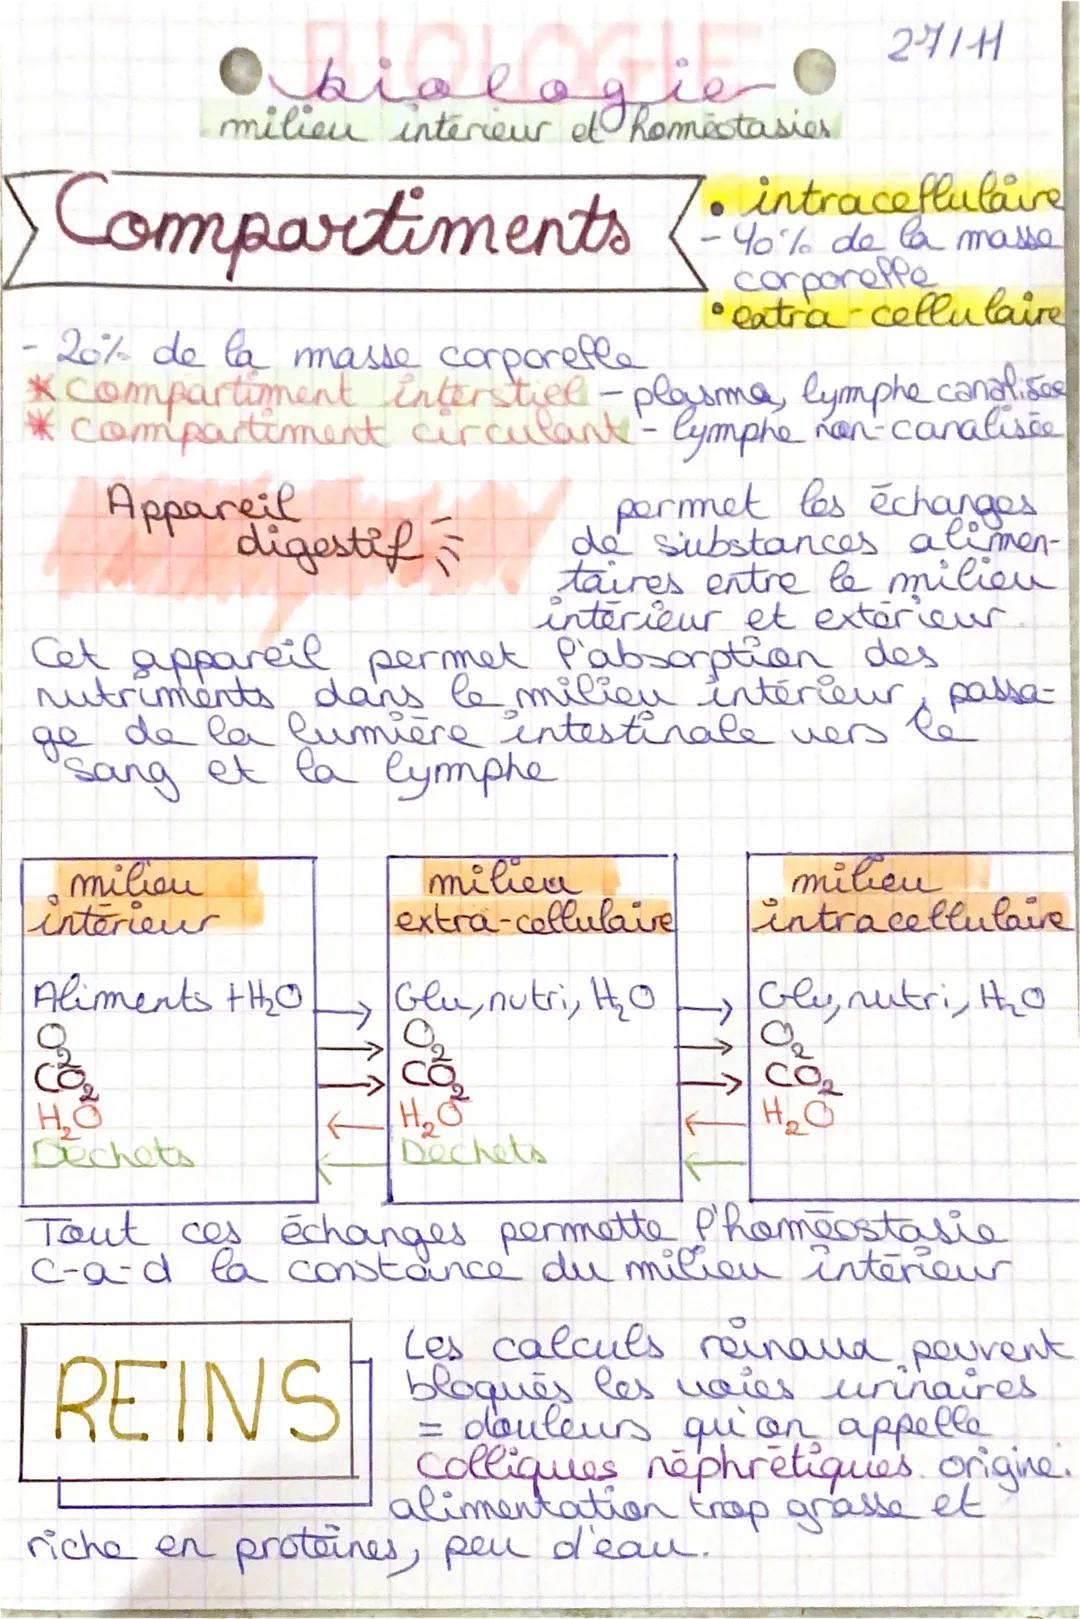 BIOLOGIE
27/11
biologie
milieu intérieur et homéostasies
Compartiments
• intracellulaire
- 40% de la masse
corporelle
• extra-cellulaire
- 20% de la masse corporelle
* compartiment interstiel - plasma, lymphe canalisée
* compartiment circulant - lymphe non-canalisée
Appareil
digestif
permet les échanges
de substances alimen-
taires entre le milieu
intérieur et extérieur.
Cet appareil permet l'absorption des
nutriments dans le milieu intérieur, passa-
ge de la lumière intestinale vers le
sang et la lymphe
milieu
intérieur
Aliments + H₂O
O₂
CO₂
H₂O
Déchets
milieu
extra-cellulaire
Glu, nutri, H₂O
O₂
CO₂
H₂O
Déchets
milieu
intracellulaire
Gly, nutri, H₂O
O₂
CO₂
H₂O
Tout ces échanges permette l'homéostasie
c-a-d la constance du milieu intérieur
REINS
Les calculs reinaux peuvent
bloqués les voies urinaires
= douleurs qu'on appelle
colliques néphrétiques. origine:
alimentation trop grasse et
riche en protéines, peu d'eau.